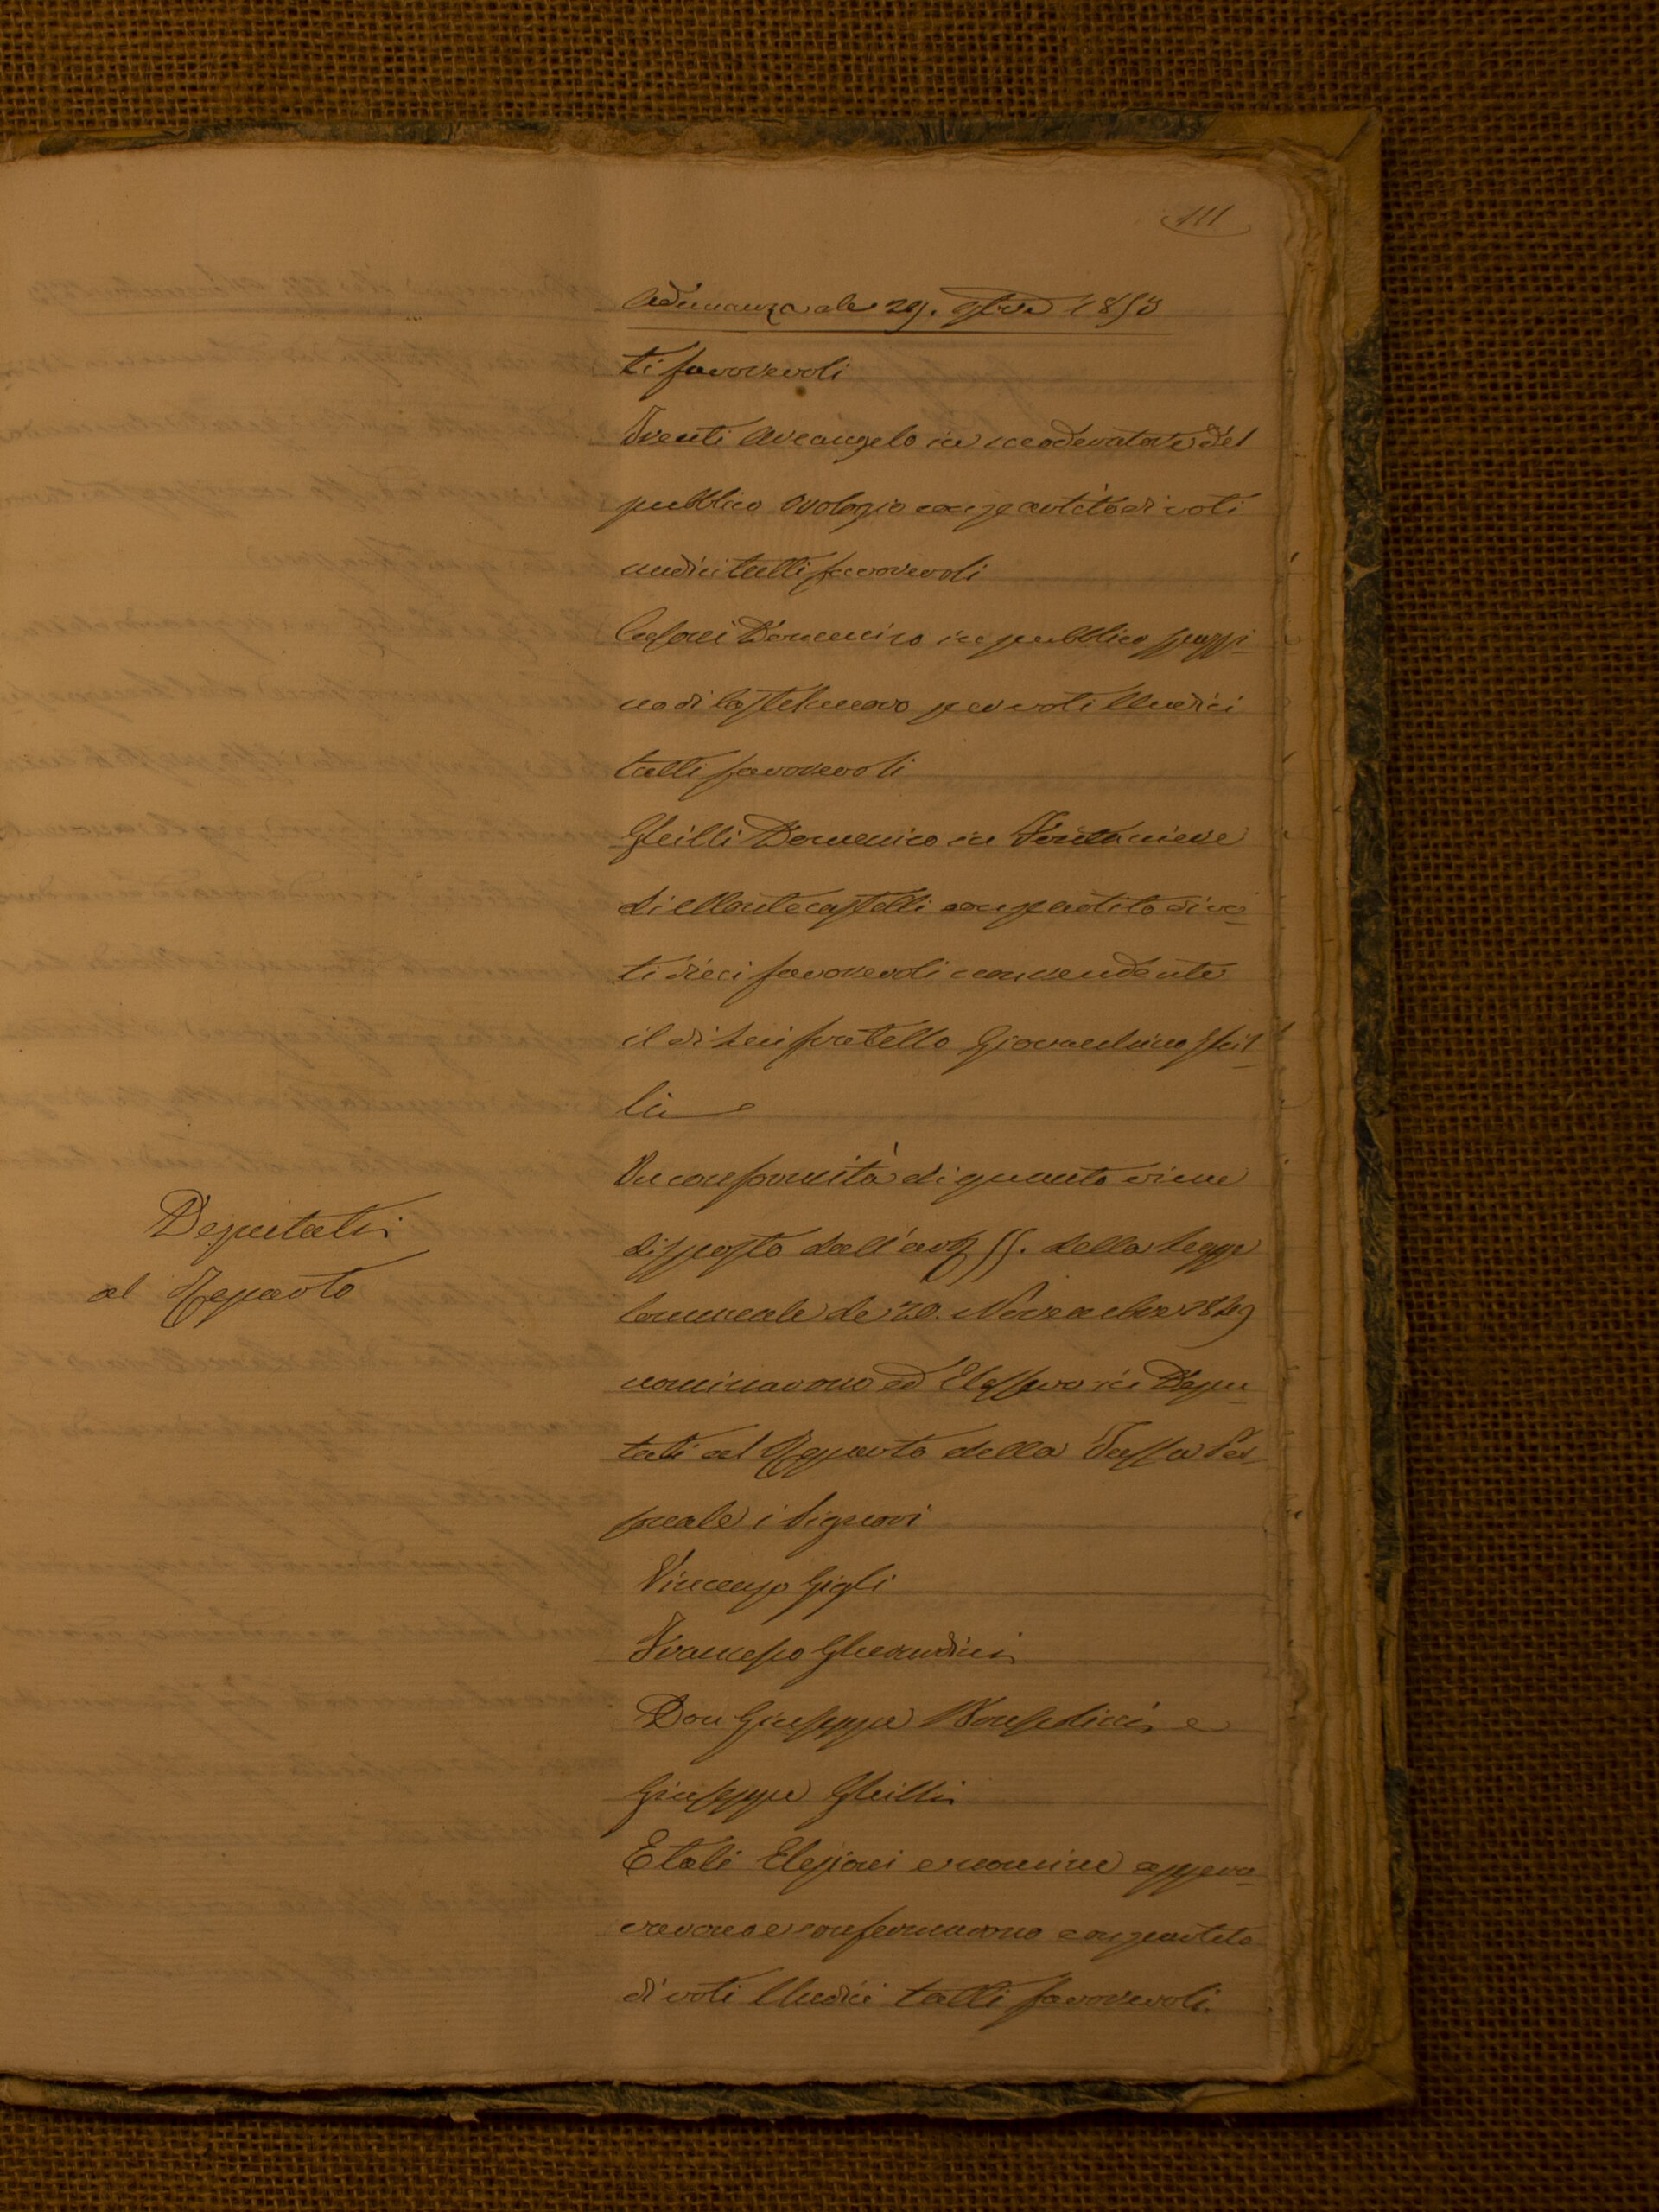 111
Adunanza de 29. 9bre 1850
ti favorevoli
Trenti Arcangelo in moderatore del
pubblico Orologio con partito di voti
undici tutti favorevoli
Casoni Domenico in pubblico spazzi-
no di Castelnuovo per voti Undici
tutti favorevoli
Ghilli Domenico in Fontaniere
di Montecastelli con partito di vo-
ti dieci favorevoli non rendente
il di Lui fratello Giovacchino Ghil-
li
In conformità di quanto viene
disposto dall'art 55. della Legge
Comunale de 20. Novembre 1849
Deputati
al Reparto
nominarono ed Elessero in Depu-
tati al Reparto della Tassa Per-
sonale i Signori
Vincenzo Gigli
Francesco Gherardini
Don Giuseppe
Giuseppe Ghilli
E tali Elezioni e nomine appro-
varono e confermarono con partito
di voti Undici tutti favorevoli.